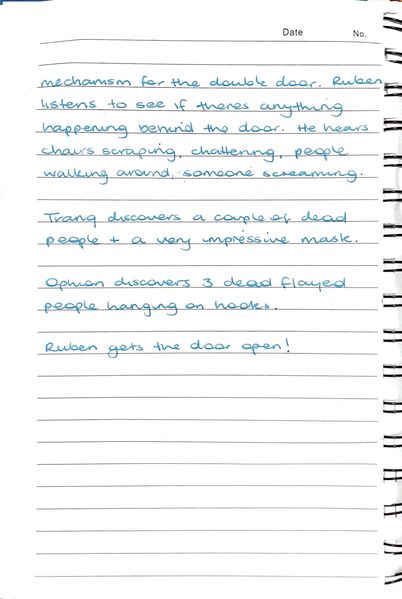 Date
No.
mechanism for the double door. Ruben
listens to see if theres anything
happening behind the door. He hears
chairs scraping, chattering, people
walking around, someone screaming.
Tranq discovers a couple of dead
people + a very impressive mask.
Ophion discovers 3 dead flayed
people hanging on hooks.
Ruben gets the door open!